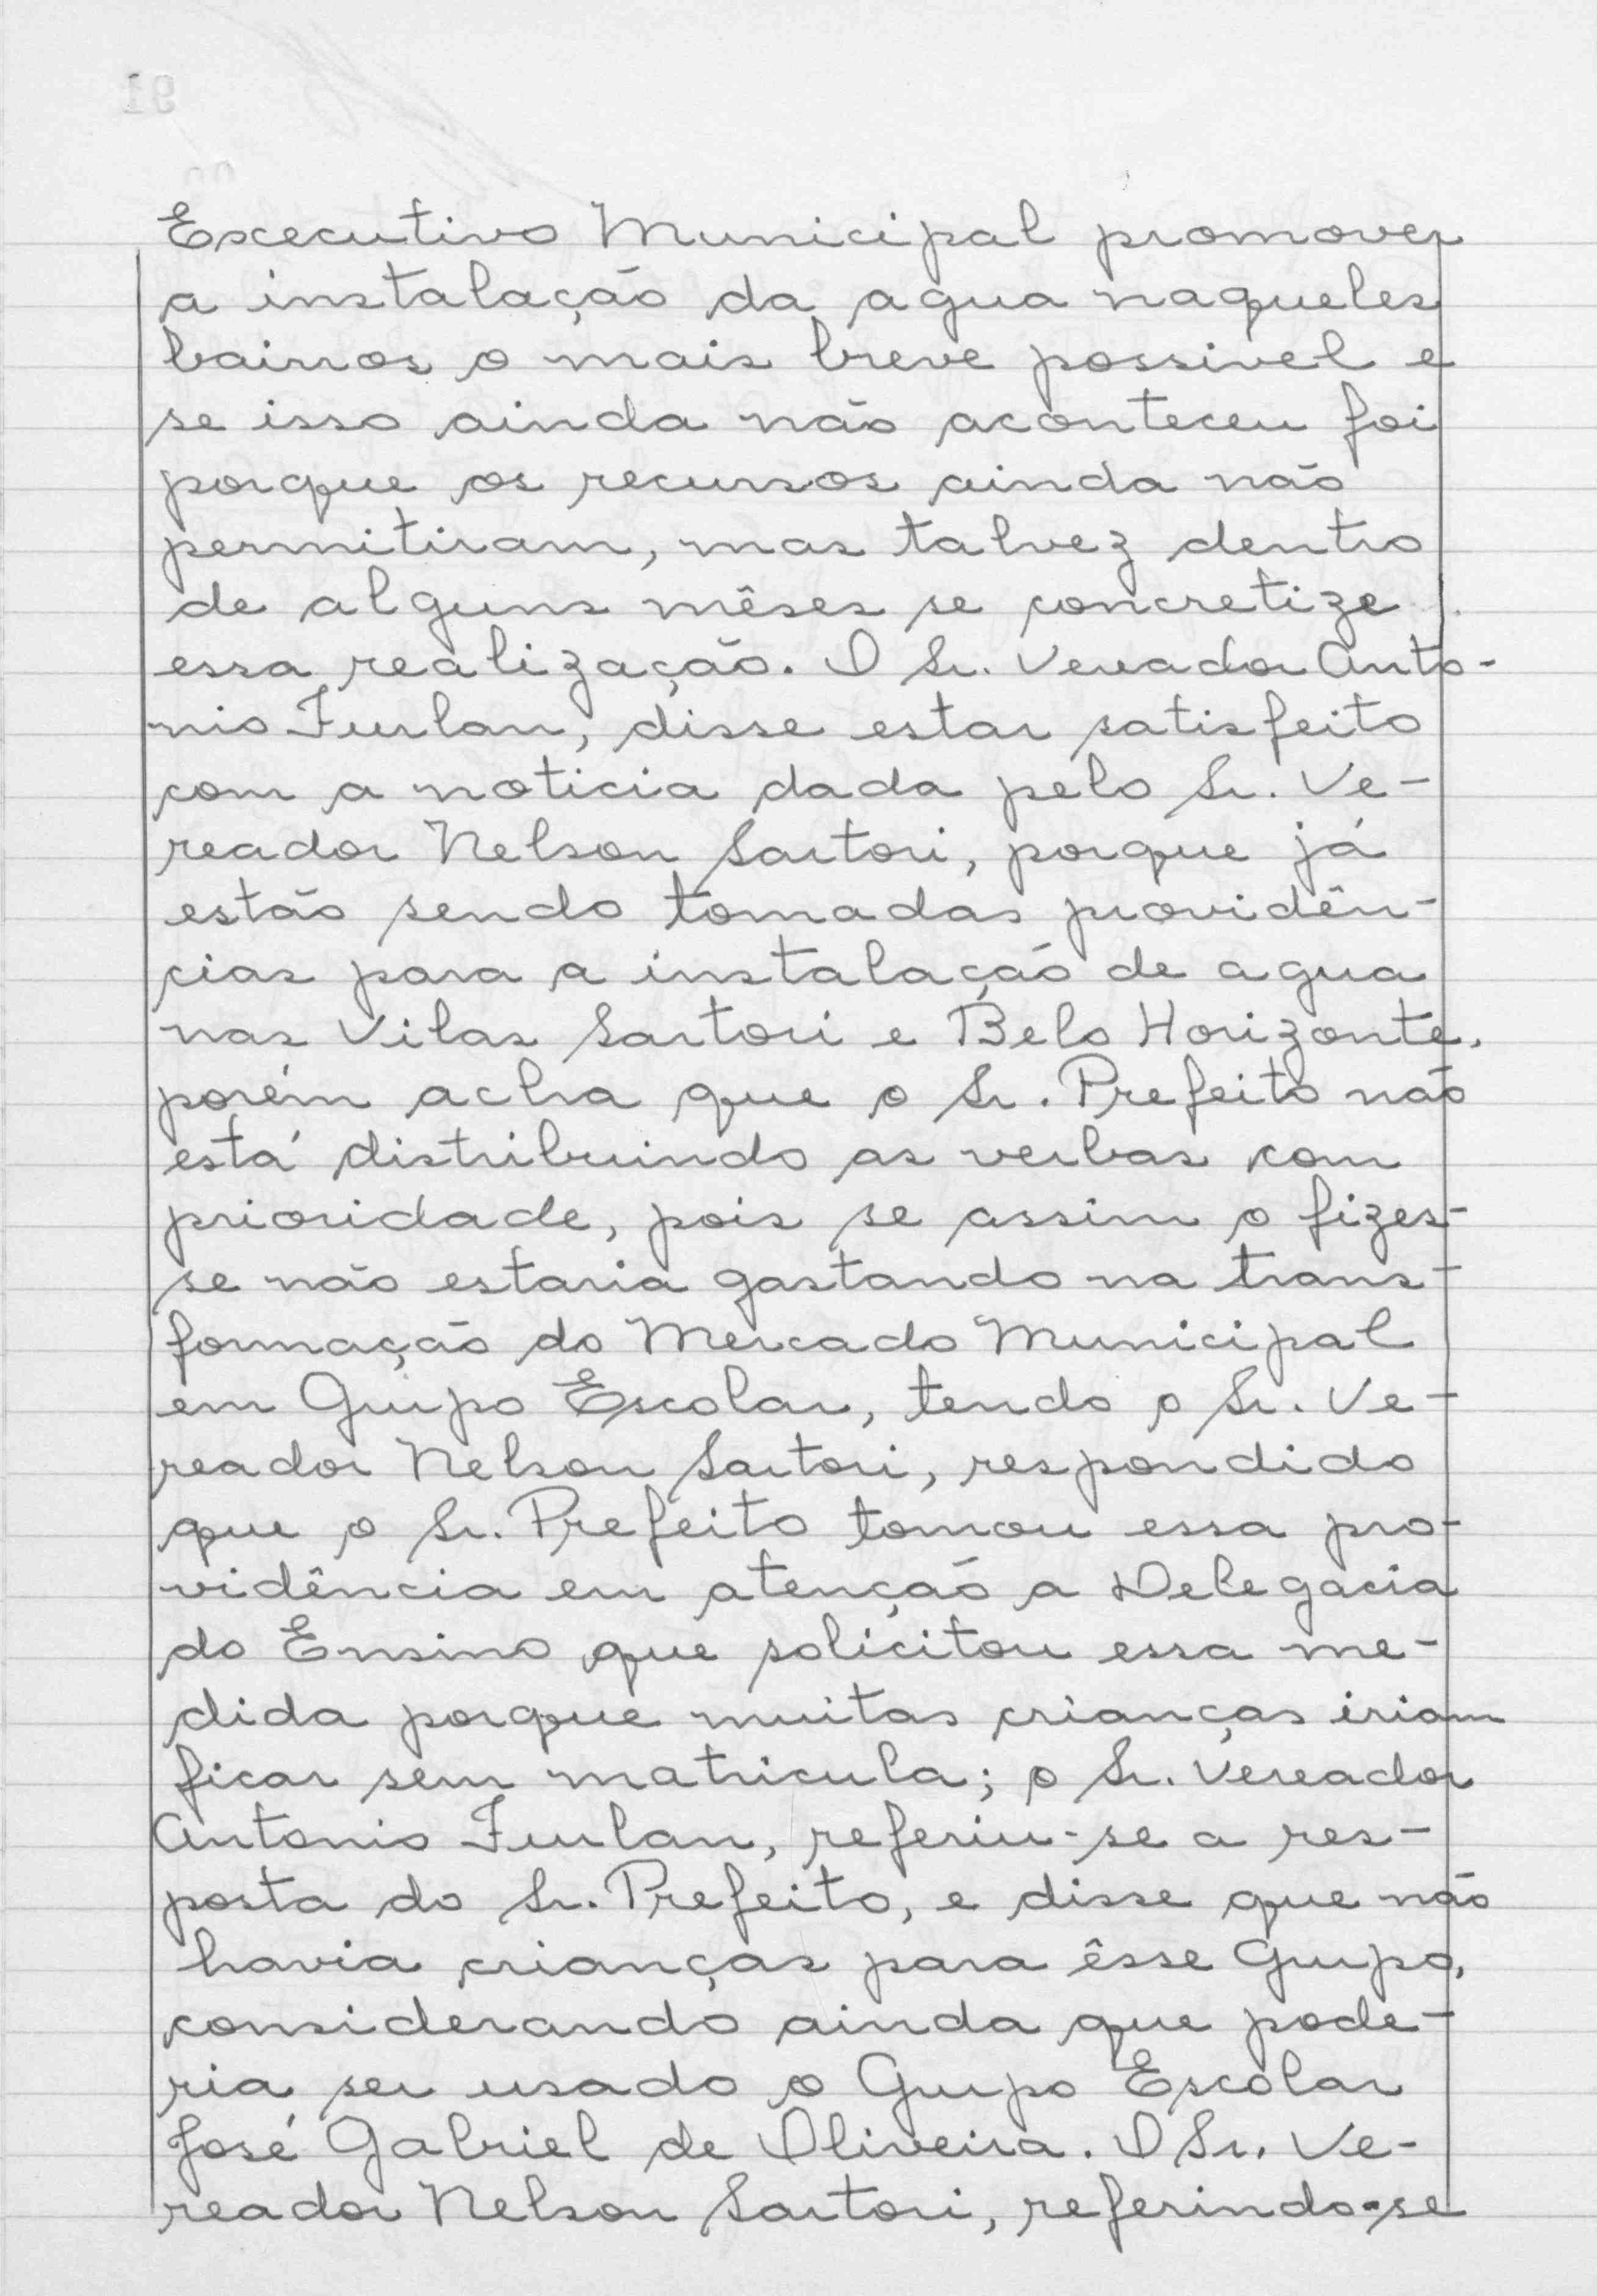 Executivo Municipal promover
a instalação da agua naqueles
bairros o mais breve possivel e
se isso ainda não aconteceu foi
porque os recursos ainda não
permitiram, mas talvez dentro
de alguns mêses se concretize
essa realização. O Sr. Vereador Anto-
nio Furlan, disse estar satisfeito
com a noticia dada pelo Sr. Ve-
reador Nelson Sartori, porque já
estão sendo tomadas providên-
cias para a instalação de agua
nas Vilas Sartori e Belo Horizonte,
porém acha que o Sr. Prefeito não
está distribuindo as verbas com
prioridade, pois se assim o fizes-
se não estaria gastando na trans-
formação do Mercado Municipal
em Grupo Escolar, tendo o Sr. Ve-
reador Nelson Sartori, respondido
que o Sr. Prefeito tomou essa pro-
vidência em atenção a Delegacia
do Ensino que solicitou essa me-
dida porque muitas crianças iriam
ficar sem matricula; o Sr. Vereador
Antonio Furlan, referiu-se a res-
posta do Sr. Prefeito, e disse que não
havia crianças para êsse Grupo,
considerando ainda que pode-
ria ser usado o Grupo Escolar
José Gabriel de Oliveira. O Sr. Ve-
reador Nelson Sartori, referindo-se